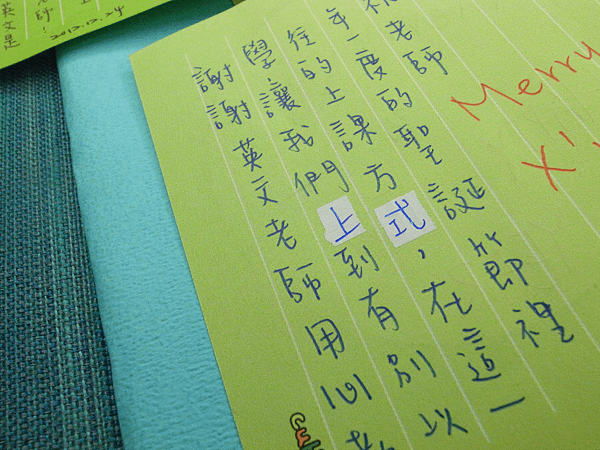 Merry
X'
老師
年一度的聖誕節裡
往的上課方式，在這一
學，讓我們上到有別以
謝謝英文老師用心
師！
英文是
2012.12.24